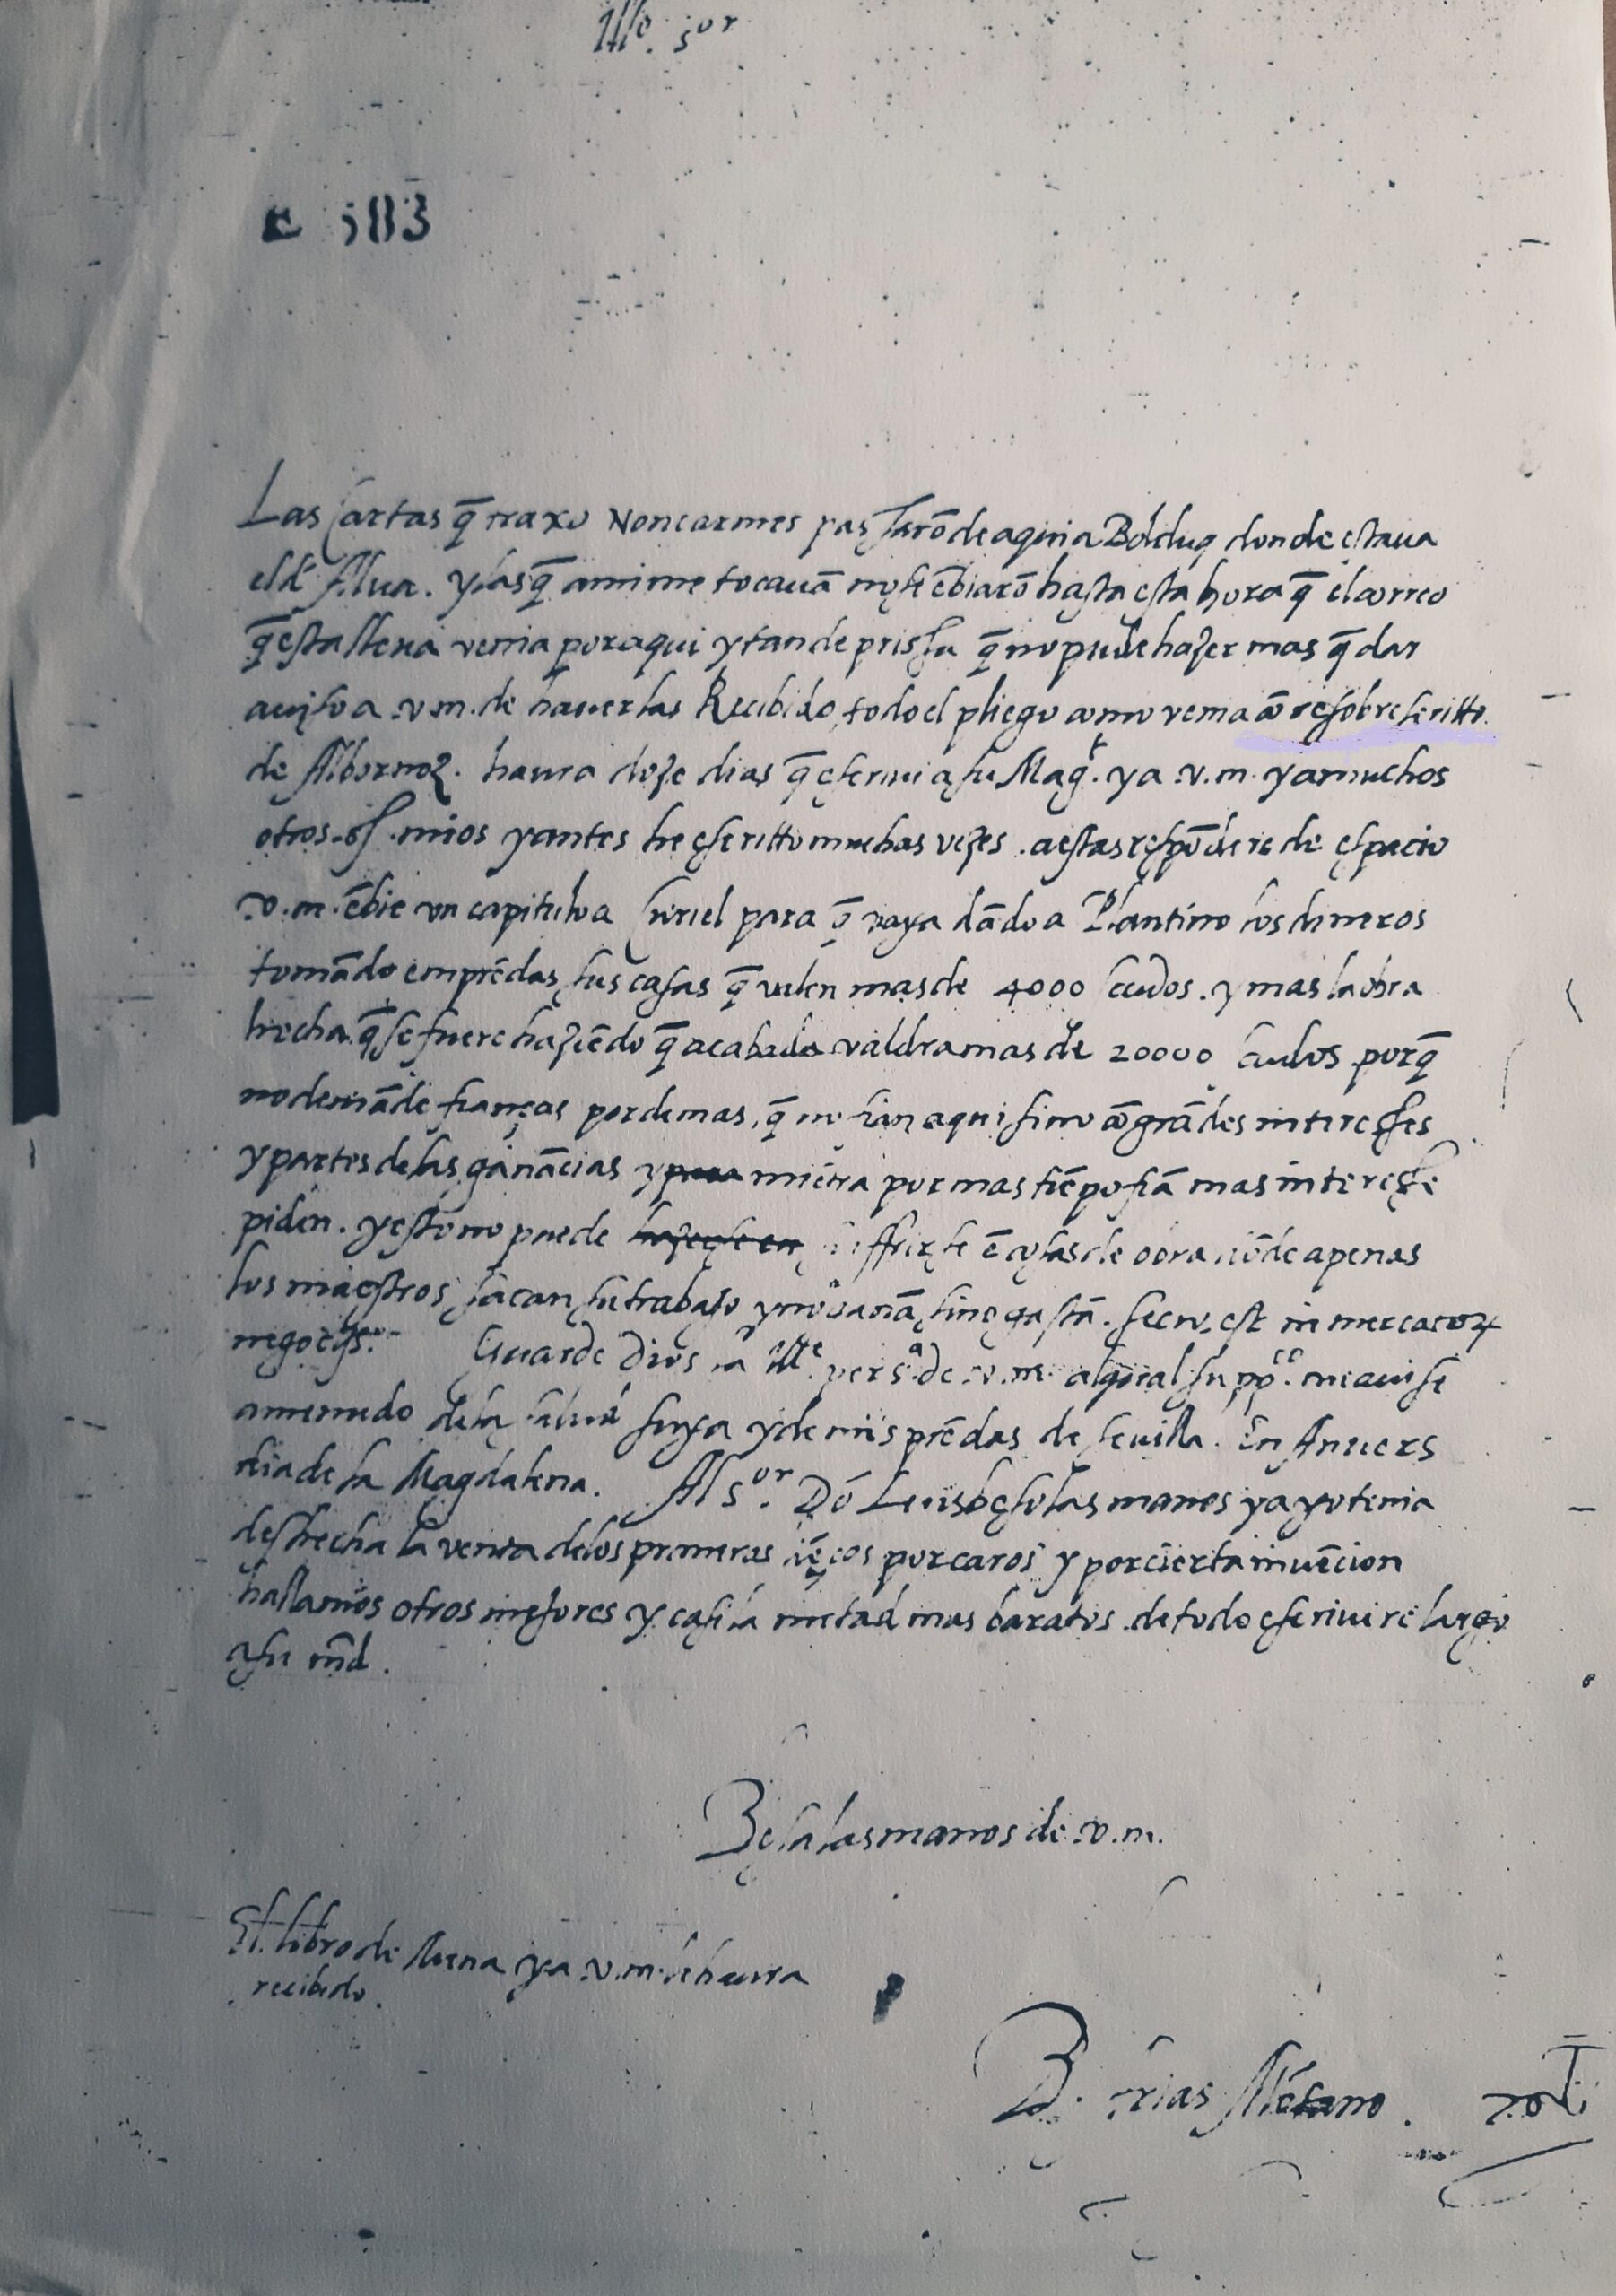 Ille. sor
E 583
Las Cartas q̄ traxo Noncarmes passarō de aqui a Bolduq donde estaua
el d Alua. y las q̄ ami me tocauā no se ēbiarō hasta esta hora q̄ el correo
q̄ esta lleua venia por aqui y tan de prissa q̄ no pude hazer mas q̄ dar
auiso a .v.m. de hauerlas Recibido, todo el pliego como venia cō resobrescritto
de Albornoz. haura doze dias q̄ escriui a su Mag.t y a .v.m. y a muchos
otros .ss. mios y antes he escritto muchas vezes . a estas respōdere de espacio
.v.m. ēbie vn capitulo a Curiel para q̄ vaya dādo a Plantino los dineros
tomādo en prēdas sus casas q̄ valen mas de 4000 scudos . y mas la obra
hecha q̄ se fuere haziēdo q̄ acabada valdra mas de 20000 scudos porq̄
no demāde fianças por demas, q̄ no fian aqui sino cō grādes interesses
y partes de las ganācias y miētra por mas tiēpo fiā mas interesse
piden . y esto no puede suffrirse ē cosas de obra dōde apenas
los maestros sacan su trabajo y no ganā sino gastā . secus est in mercatorꝝ
negocijs. Guarde Dios la Ille. pers.a de .v.m. al qual supp.co me auise
amenudo de la salud suya y de mis prēdas de seuilla . En Anuers
dia de la Magdalena. Al s.or Dō Luis beso las manos ya yo tenia
deshecha la venta de los primeros liēços por caros y por cierta inuēcion
hallamos otros mejores y casi la mitad mas baratos . de todo escriuire largo
a su md .
Besa las manos de .v.m.
El libro de Mena ya .v.m. le haura
recibido.
B. Arias Mōtano .